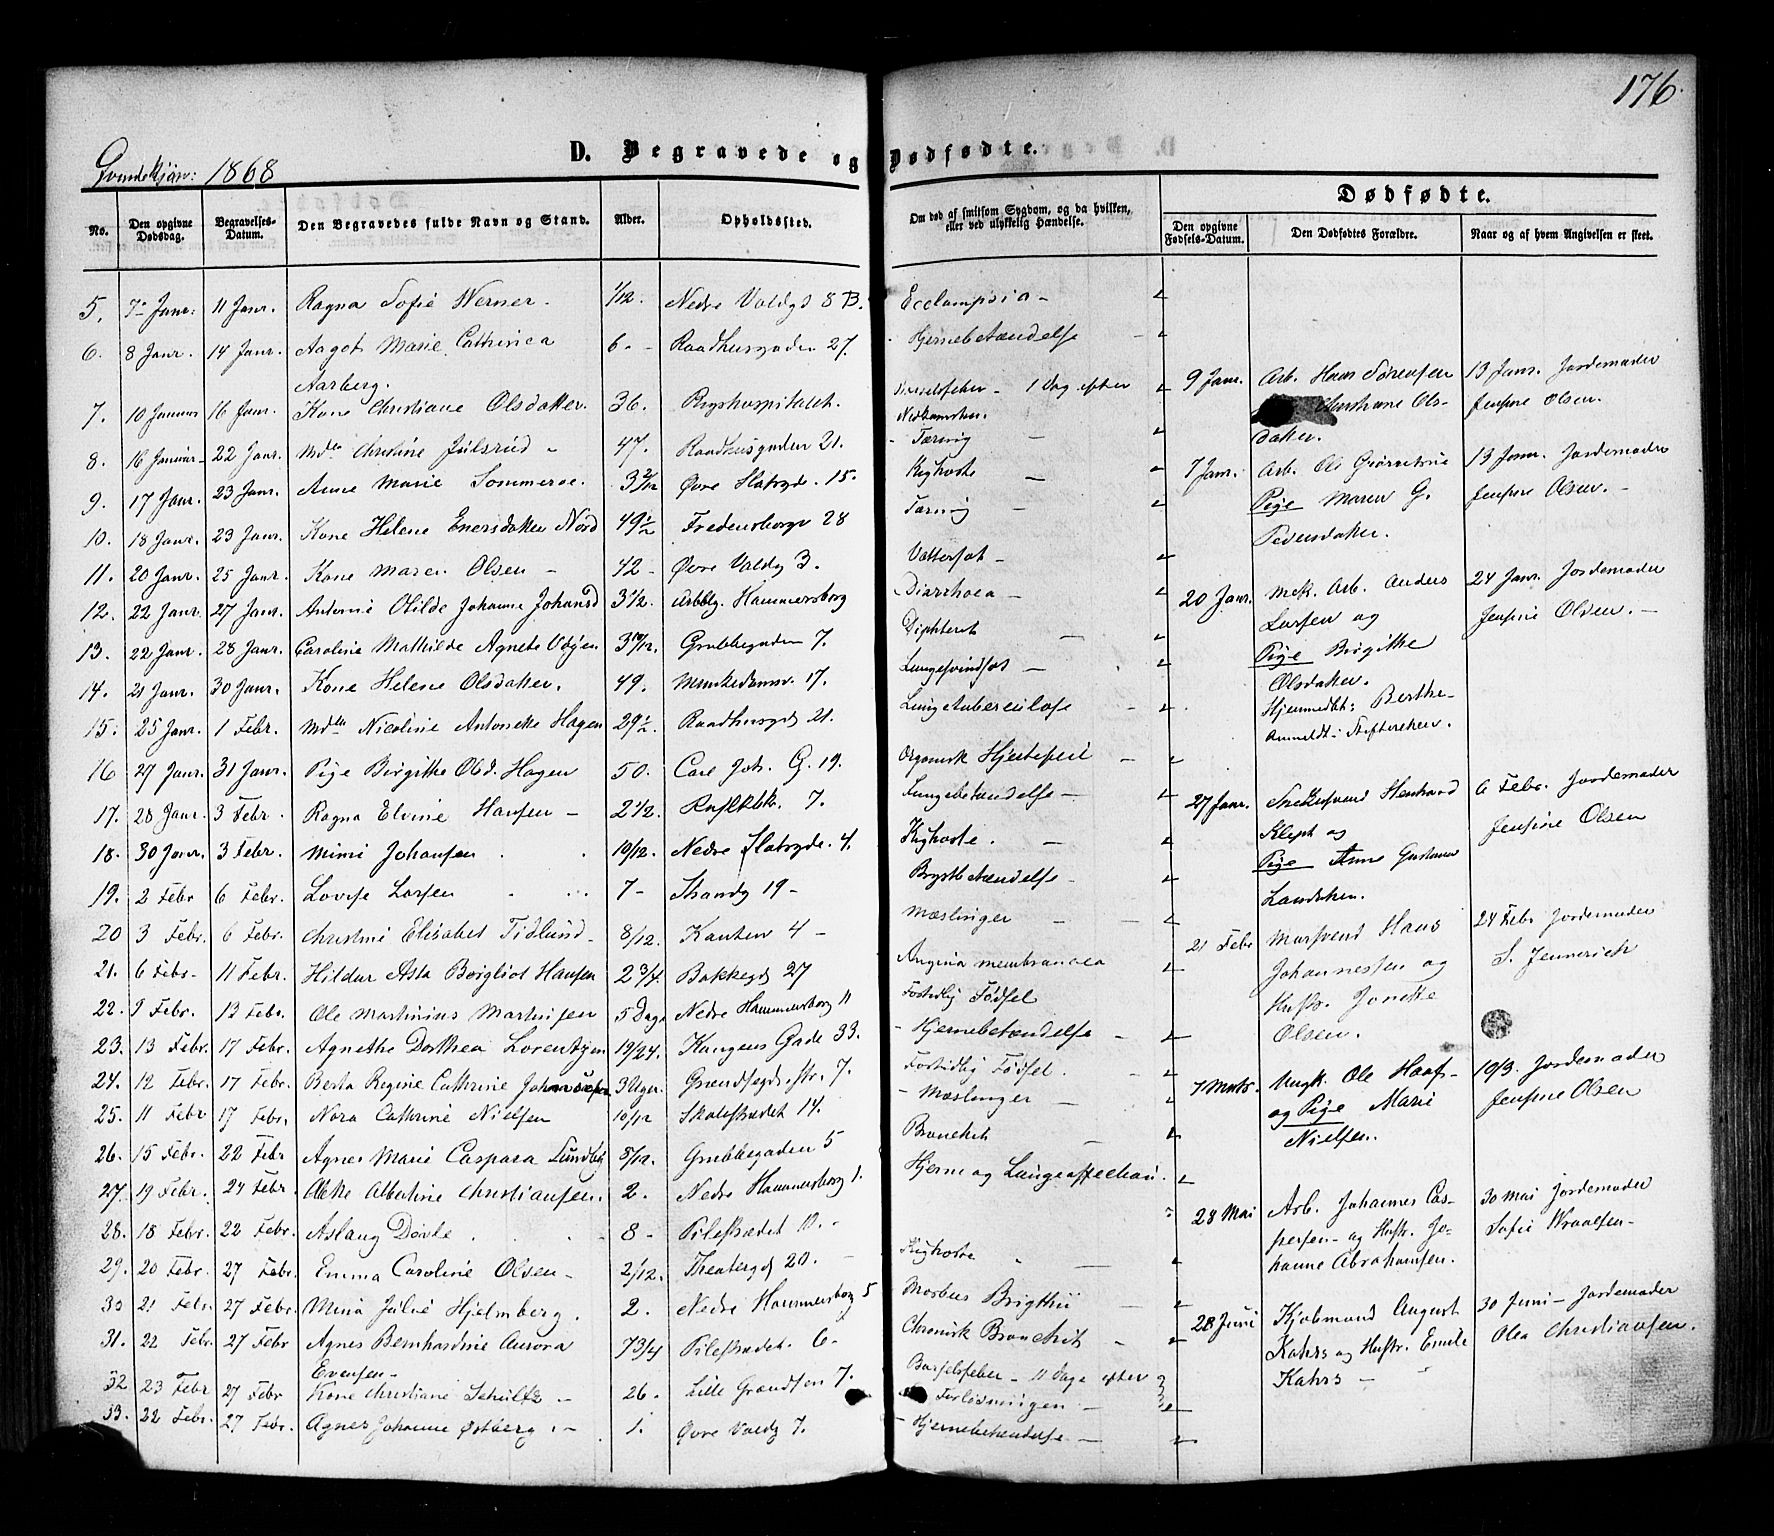 176.
D. Begravede og Dødfødte.
Qvindekjøn: 1868
Dødfødte.
No. Den opgivne Dødsdag. Begravelses-Datum. Den Begravedes fulde Navn og Stand. Alder. Opholdssted. Om død af smitsom Sygdom, og da hvilken, eller ved ulykkelig Hændelse. Den opgivne Fødsels-Datum. Den Dødfødtes Forældre. Naar og af hvem Angivelsen er skeet.
5. 7 Janr. 11 Janr. Ragna Sofie Werner 1/12. Nedre Voldgd 8 B. Ecclampsia
6. 8 Janr. 14 Janr. Aagot Marie Cathrinea Aarberg. 6 Raadhusgaden 27. Hjernebetændelse
7. 10 Januar 16 Janr. Kone Christiane Olsdatter. 36. Rigshospitalet. Barselfeber 1 Dag efter Nedkomsten.
8. 16 Januar 22 Janr. Christine Julsrud 47. Raadhusgaden 21. Tæring
9. 17 Janr. 23 Janr. Anne Marie Sommeroe. 3 2/12 Øvre Slotsgd. 15. Kighoste
10. 18 Janr. 23 Janr. Kone Helene Enersdatter Nord 49 1/2 Fredensborgv 28 Tæring
11. 20 Janr. 25 Janr. Kone Maren Olsen 42 Øvre Voldg 3. Vattersot
12. 22 Janr. 27 Janr. Antonie Otilde Johanne Johansd 3 1/2. Arbblg. Hammersborg Diarrhoea
13. 22 Janr. 28 Janr. Caroline Mathilde Agnete 3 10/12. Grubbegaden 7. Diphterit
14. 21 Janr. 30 Janr. Kone Helene Olsdatter. 49. Munkedamsv. 17. Lungesvindsot
15. 25 Janr. 1 Febr. Nicoline Antonette Hagen 29 1/2 Raadhusgd 21. Lungetuberculose
16 27 Janr. 31 Janr. Pige Birgitte Olsd. Hagen 50. Carl Joh. G. 19. Organisk Hjertefeil
17. 28 Janr. 3 Febr. Ragna Elvine Hansen 2 1/2. 7. Lungebetændelse
18. 30 Janr. 3 Febr. Mimi Johansen 10/12. Nedre Slotsgde. 4. Kighoste.
19. 2 Febr 6 Febr. Lovise Larsen 7 Strandg 19 Brystbetændelse
20 3 Febr. 6 Febr. Christine Elisabet Tidlund 8/12. Kanten 4 Mæslinger
21. 6 Febr. 11 Febr. Hildur Asta Borgliot Hansen 2 3/4. Bakkegd 27 Angina membranacea
22. 9 Febr. 12 Febr. Ole Martinius Martinsen 5 Dage Nedre Hammersborg 11 Fortidlig Fødsel
23. 13 Febr. 17 Febr. Agnethe Dorthea Lorentzen 19/24. Kongens Gade 33. Hjernebetændelse
24. 12 Febr. 17 Febr. Berta Regine Cathrine Johannesen 3 Uger. 7. Fortidlig Fødsel.
25. 11 Febr 17 Febr. Nora Cathrine Nielsen 10/12 Skolestrædet 14. Mæslinger
26. 15 Febr. 22 Febr Agnes Marie Caspara Lundby 8/12. Grubbegaden 5 Bronchit
27. 19 Febr. 24 Febr Albertine Christiansen. 2. Nedre Hammersborg 1. Hjerne og Lungeaffection.
28. 18 Febr. 22 Febr. Aslaug Dovle 8 Pilestrædet 10.
29. 20 Febr. 27 Febr. Emma Caroline Olsen 2/12. Theatergd 20. Kighoste
30 21 Febr 27 Febr. Mina Julie Hjelmberg. 2. Nedre Hammersborg 5 Morbus Brigthii
31. 22 Febr. 27 Febr Agnes Bernhardine Aurora Evensen 7 3/4 Pilestrædet. 6 Chronisk Bronchit
32. 23 Febr 27 Febr Kone Christiane Schultz 26. Lille Grændsen 7. Barselfeber 11 Dage efter Forløsningen
33. 22 Febr. 27 Febr. Agnes Johanne Østberg. 1. Øvre Voldg 7. Hjernebetændelse
9 Janr. Arb. Hans Sørensen Christiane Olsdatter. 13 Janr. Jordemoder Jensine Olsen.
7 Janr. Arb. Ole Pige Maren G. Pedersdatter. 13 Janr. Jordemoder Jensine Olsen.
20 Janr. Mek. Arb. Anders Larsen og Pige Birgitte Olsdatter. Anmeldt 24 Janr. Jordemoder Jensine Olsen.
27 Janr. og Pige Anne 6 Febr. Jordemoder Jensine Olsen
21 Febr Mursvend Hans Johannessen og Hustr. Jonette Olsen. 24 Febr Jordemoder S. Jennerich
7 Marts. Ungk. Ole og Pige Marie Nielsen. 10/3. Jordemoder Jensine Olsen
28 Mai Arb. Johannes Caspersen og Hustr. Johanne Abrahamsen. 30 Mai Jordemoder Sofie
28 Juni Kjøbmand August Kahrs og Hustr. Emilie Kahrs 30 Juni Jordemoder Olea Christiansen.